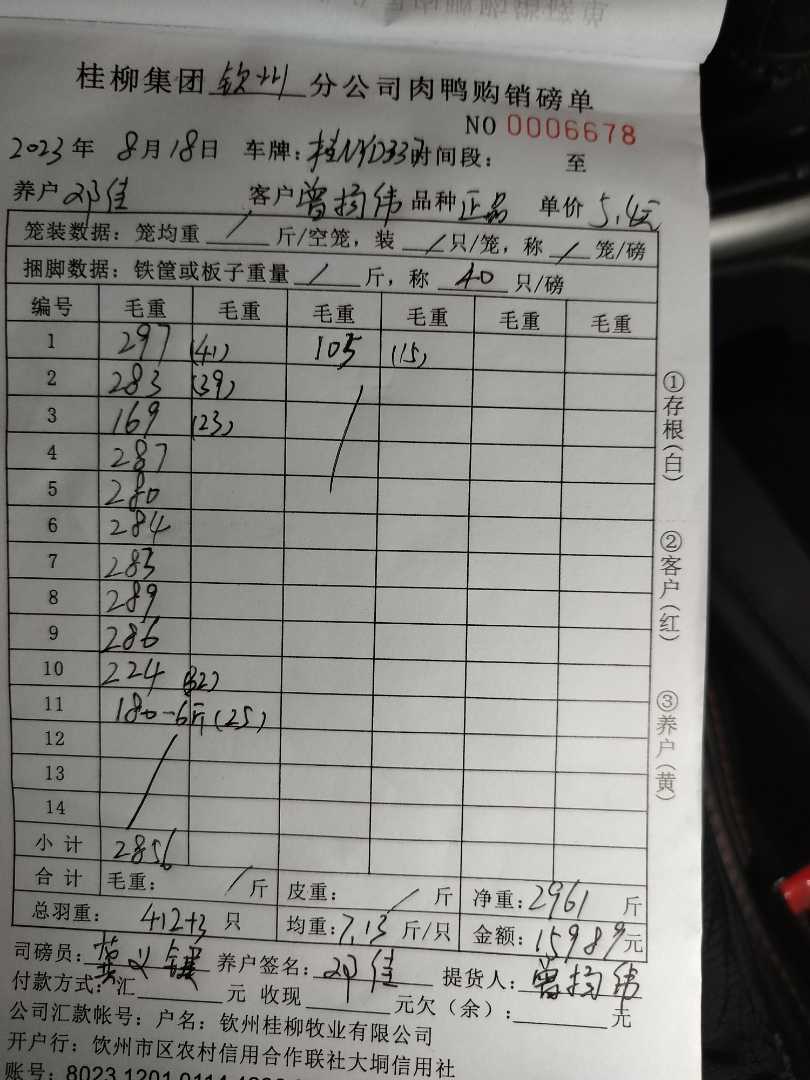 桂柳集团 钦州 分公司肉鸭购销磅单
NO 0006678
2023年 8月18日 车牌：桂NYD337 时间段： 至
养户 邓佳 客户 曾扬伟 品种 正品 单价 5.4元
笼装数据：笼均重 / 斤/空笼，装 / 只/笼，称 / 笼/磅
捆脚数据：铁筐或板子重量 / 斤，称 40 只/磅
编号 毛重 毛重 毛重 毛重 毛重 毛重
1 297 (41) 105 (15)
2 283 (39)
3 169 (23)
4 287
5 280
6 284
7 283
8 289
9 286
10 224 (32)
11 180-6斤(25)
12
13
14
小计 2856
合计 毛重： / 斤 皮重： / 斤 净重：2961 斤
总羽重： 412+3 只 均重：7.13 斤/只 金额：15989元
司磅员： 养户签名：邓佳 提货人：曾扬伟
付款方式：汇 元 收现 元欠（余）： 元
公司汇款帐号：户名：钦州桂柳牧业有限公司
开户行：钦州市区农村信用合作联社大垌信用社
账号：8023 1201 0114
①存根（白）
②客户（红）
③养户（黄）